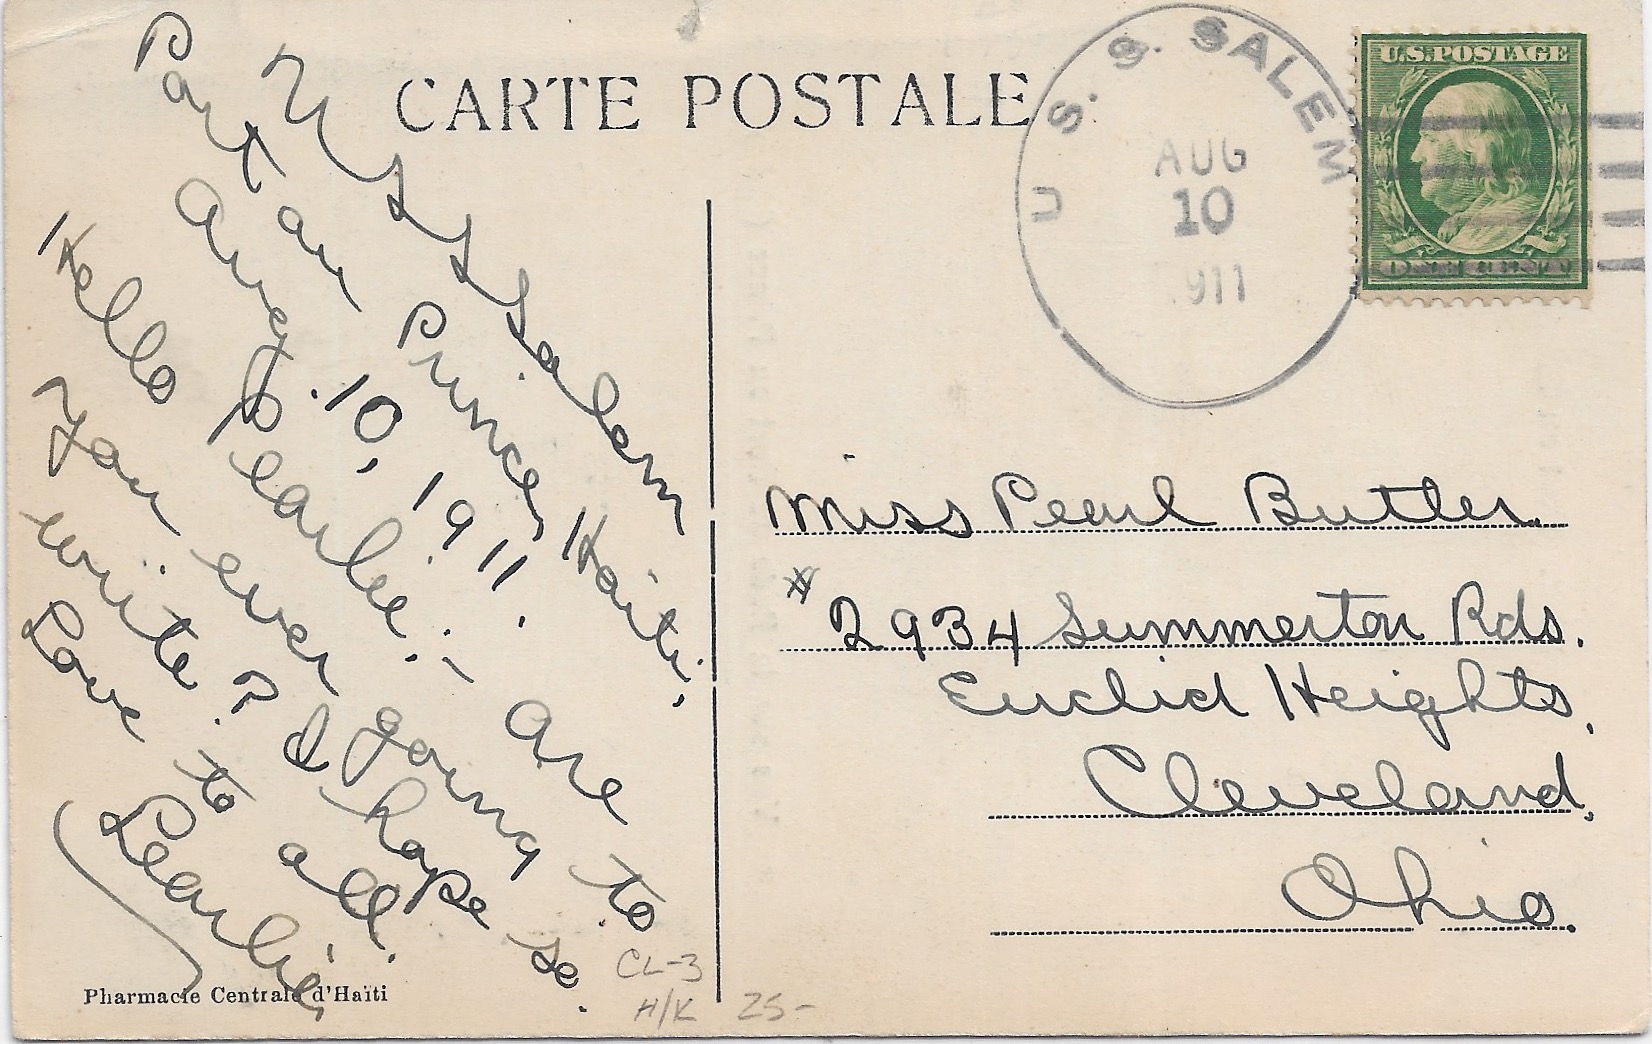 CARTE POSTALE
U. S. S. SALEM
AUG
10
1911
U.S. POSTAGE
ONE CENT
U S S Salem
Port au Prince, Haiti,
Aug. 10, 1911.
Hello Pearlie:- are
you ever going to
write? I hope so.
Love to all.
Miss Pearl Butler.
#2934 Summerton Rds.
Euclid Heights,
Cleveland,
Ohio.
Pharmacie Centrale d'Haïti
CL-3
H/K 25-